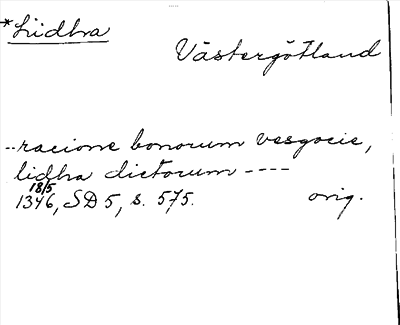 *Liidhra
Västergötland
--racione bonorum vesgocie,
lidhra dictorum ----
18/5
1346, SD 5, s. 575. orig.